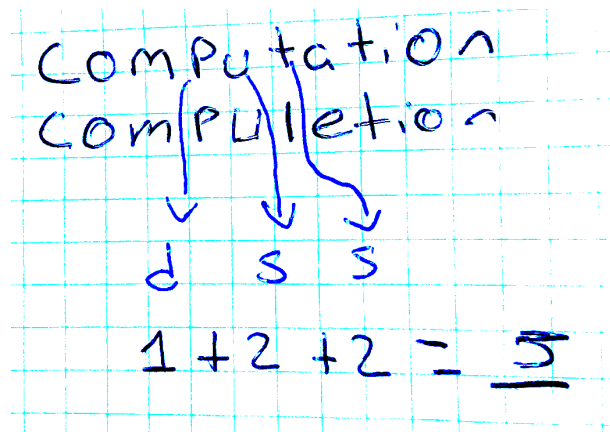 Computation
Compuletion
d s s
1 + 2 + 2 = 5